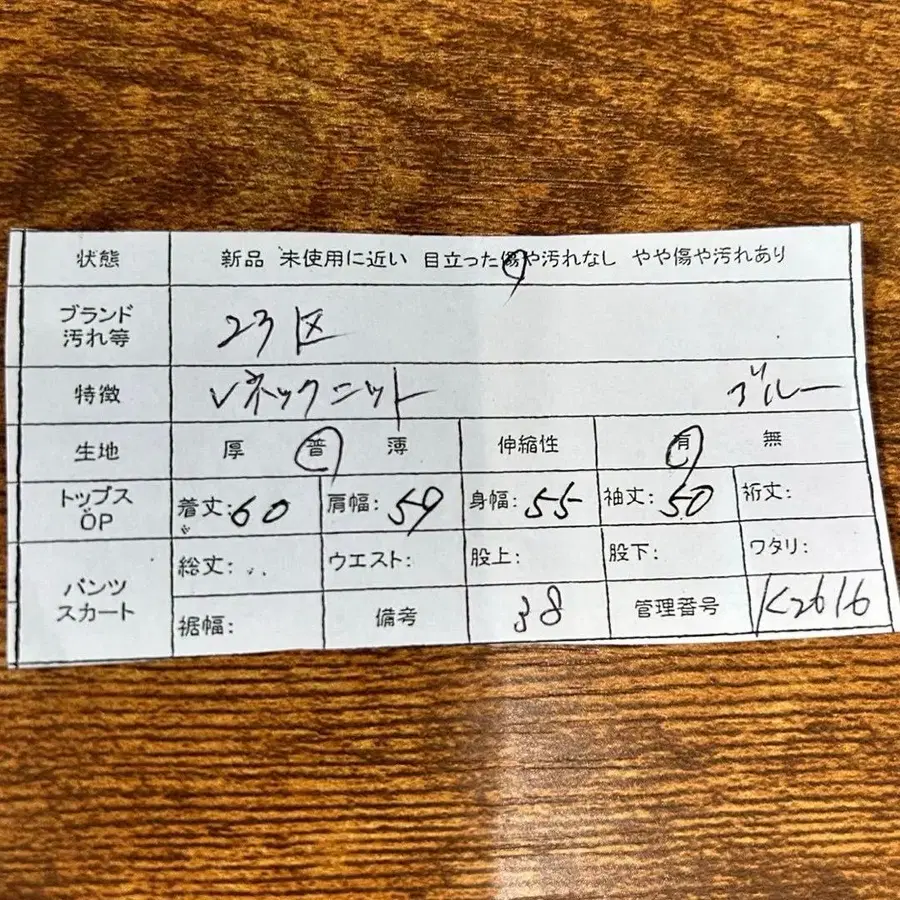 状態 新品 未使用に近い 目立った傷や汚れなし やや傷や汚れあり
ブランド
汚れ等 23区
特徴 Vネックニット ブルー
生地 厚 普 薄 伸縮性 有 無
トップス
OP 着丈:60 肩幅:59 身幅:55 袖丈:50 裄丈:
パンツ
スカート 総丈: ウエスト: 股上: 股下: ワタリ:
裾幅: 備考 38 管理番号 K2616